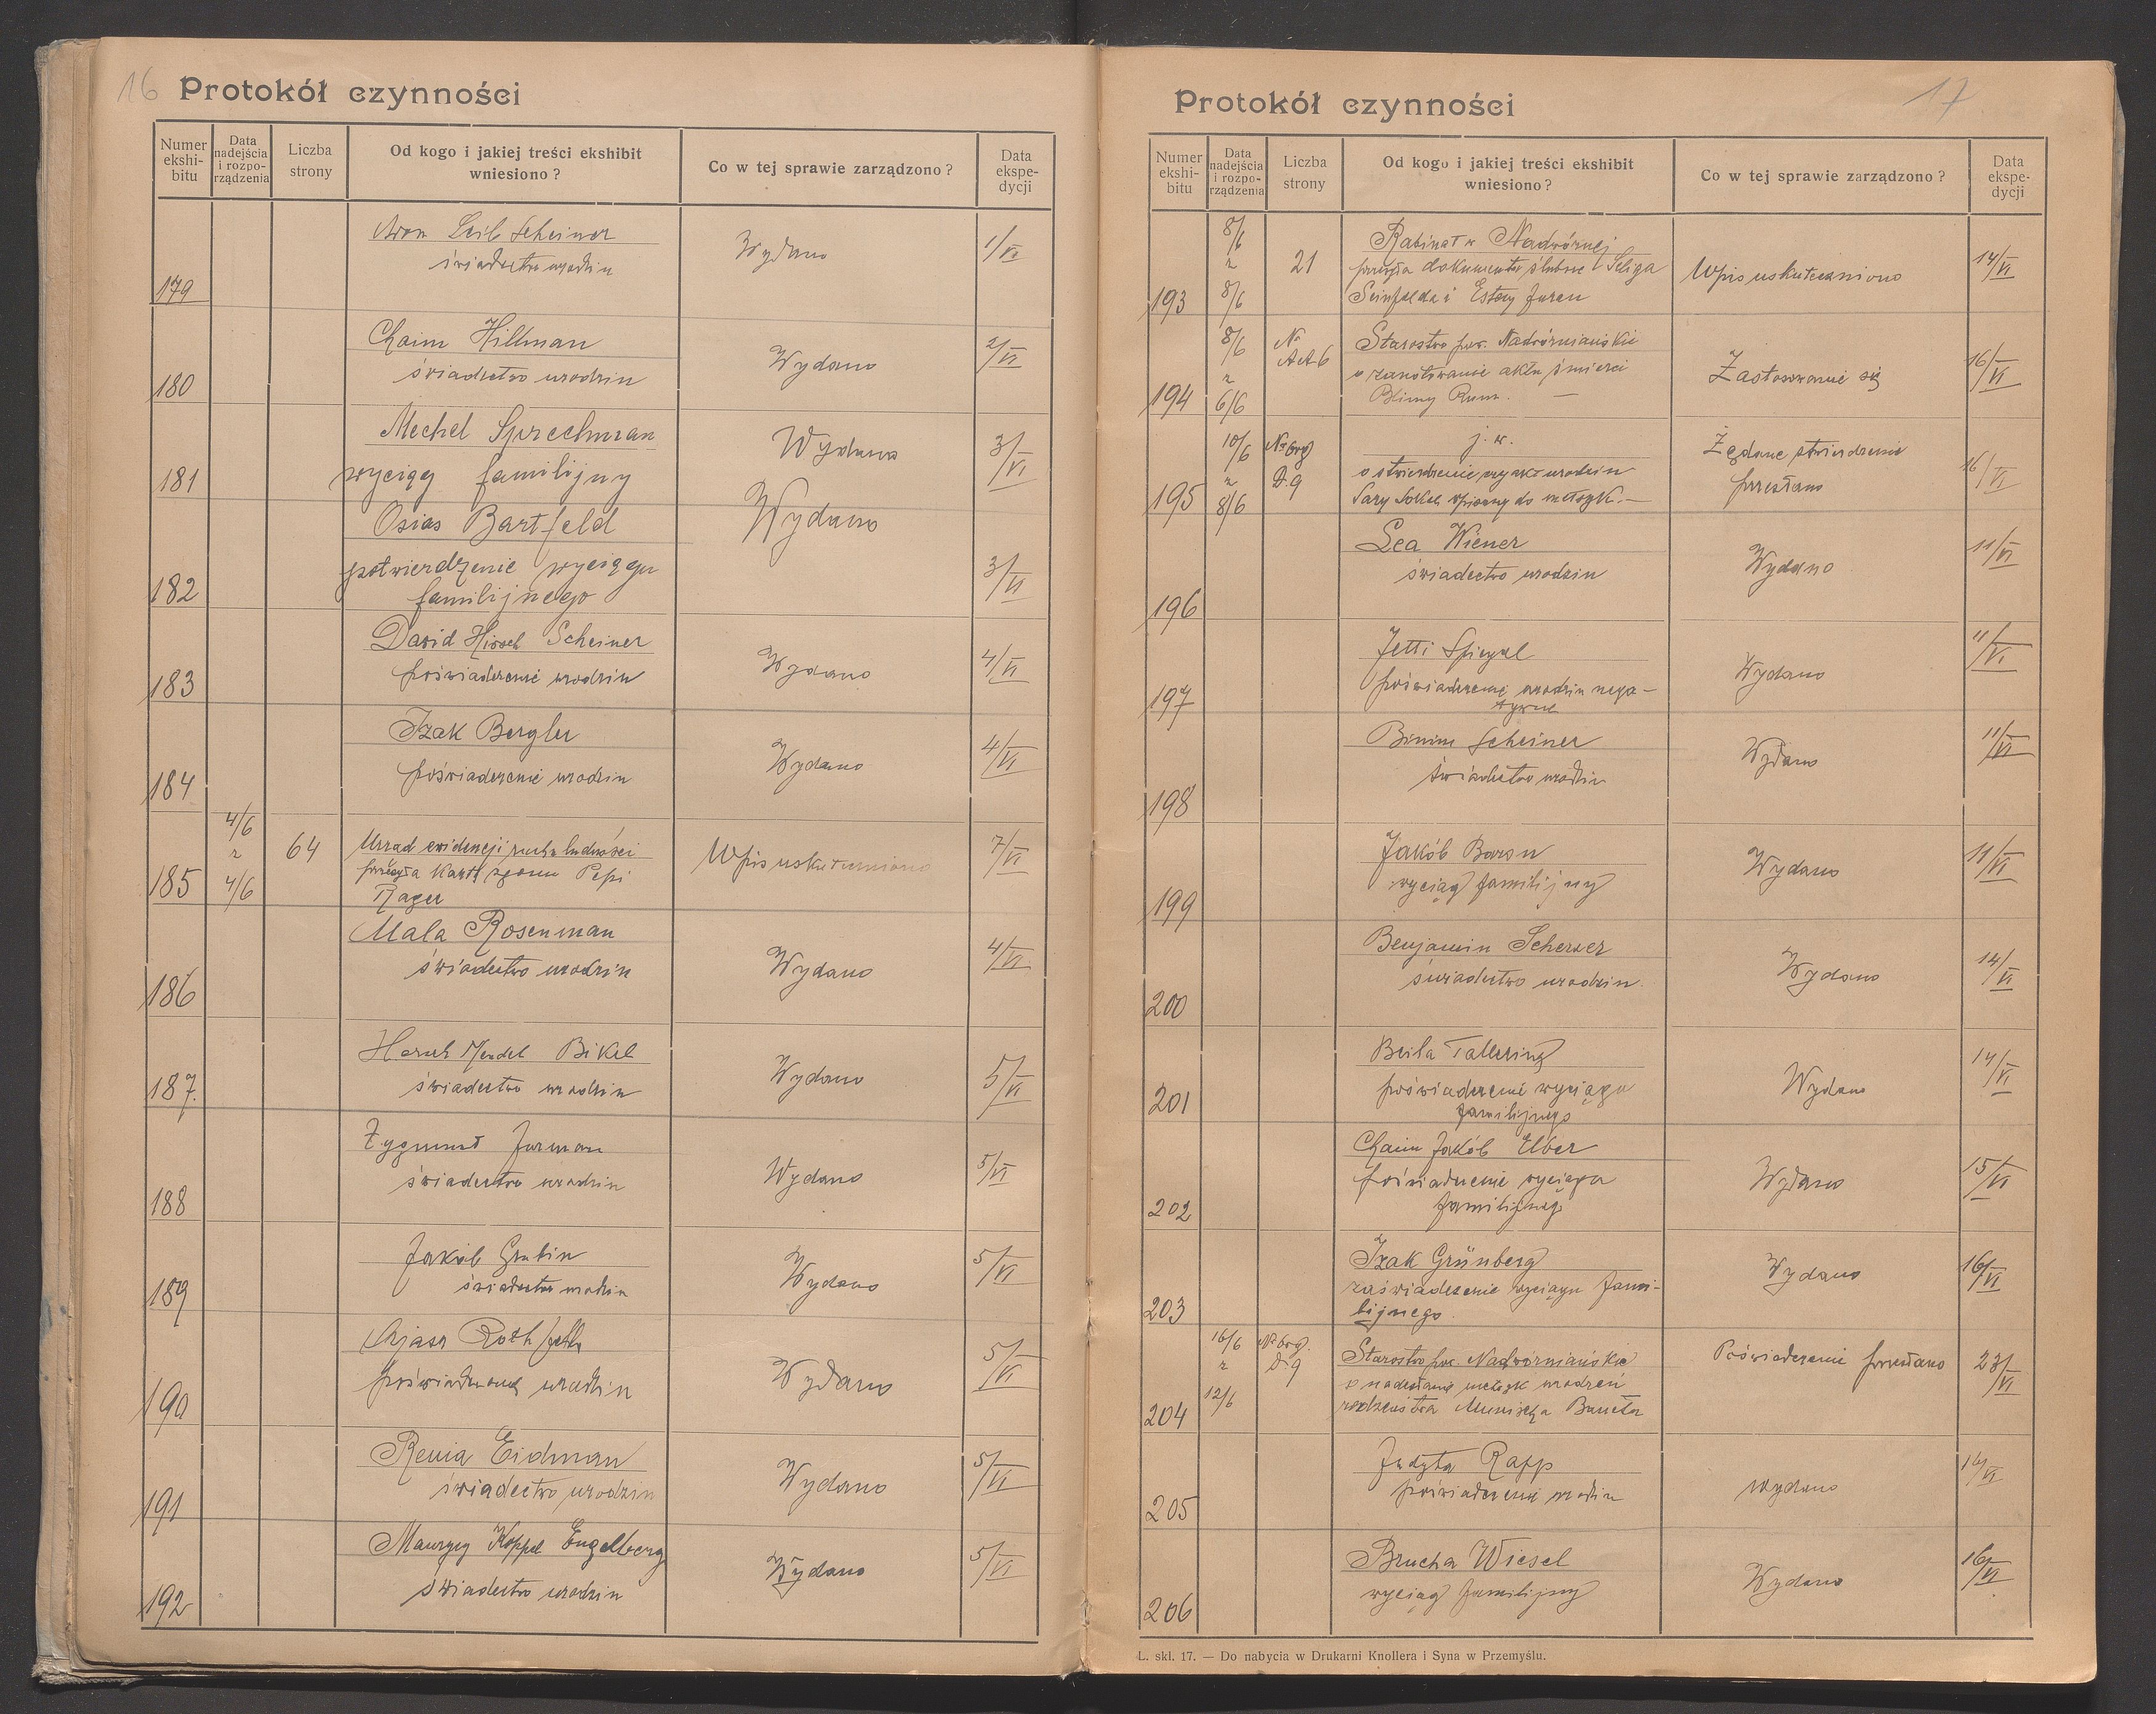 16 Protokół czynności
Numer ekshi-bitu
Data nadejścia i rozpo-rządzenia
Liczba strony
Od kogo i jakiej treści ekshibit wniesiono?
Co w tej sprawie zarządzono?
Data ekspe-dycji
Aron Leib Scheiner
świadectwo urodzin
Wydano
1/VI
179
Chaim Hillman
świadectwo urodzin
Wydano
2/VI
180
Mechel Sprechman
wyciąg familijny
Wydano
3/VI
181
Osias Bartfeld
potwierdzenie wyciągu
familijnego
Wydano
3/VI
182
Dawid Hirsch Scheiner
poświadczenie urodzin
Wydano
4/VI
183
Izak Bergler
poświadczenie urodzin
Wydano
4/VI
184
4/6
z
4/6
64
Urząd ewidencji ruchu ludności
przesyła kartę zgonu Pepi
Rager
Wpis uskuteczniono
7/VI
185
Mala Rosenman
świadectwo urodzin
Wydano
4/VI
186
Hersch Mendel Bikel
świadectwo urodzin
Wydano
5/VI
187.
Zygmunt Jurman
świadectwo urodzin
Wydano
5/VI
188
Jakób Grubin
świadectwo urodzin
Wydano
5/VI
189
Roth
urodzin
Wydano
5/VI
190
Renia Eidman
świadectwo urodzin
Wydano
5/VI
191
Maurycy Koppel Engelberg
świadectwo urodzin
Wydano
5/VI
192
Protokół czynności 17
Numer ekshi-bitu
Data nadejścia i rozpo-rządzenia
Liczba strony
Od kogo i jakiej treści ekshibit wniesiono?
Co w tej sprawie zarządzono?
Data ekspe-dycji
8/6
z
8/6
21
Rabinat w Nadwórnej
przesyła dokumenta ślubne Seliga
i Estery
Wpis uskuteczniono
14/VI
193
8/6
z
6/6
No
Starostwo pow. Nadwórniańskie
o zanotowanie aktu śmierci
Blimy
Zastosowanie się
16/VI
194
10/6
z
8/6
D.9
j. w.
o stwierdzenie urodzin
Sary
Żądane stwierdzenie
przesłano
16/VI
195
Lea Wiener
świadectwo urodzin
Wydano
11/VI
196
Jetti Spiegel
poświadczenie urodzin nega-
tywne
Wydano
11/VI
197
Binim Scheiner
świadectwo urodzin
Wydano
11/VI
198
Jakób Baron
wyciąg familijny
Wydano
11/VI
199
Benjamin Scherzer
świadectwo urodzin.
Wydano
14/VI
200
Beila
poświadczenie wyciągu
familijnego
Wydano
14/VI
201
Chaim Jakób Elber
poświadczenie wyciągu
familijnego
Wydano
15/VI
202
Izak Grünberg
zaświadczenie wyciągu fami-
lijnego
Wydano
16/VI
203
16/6
z
12/6
D.9
Starostwo pow. Nadwórniańskie
o nadesłanie metryk urodzeń
rodzeństwa
Poświadczenie przesłano
23/VI
204
Judyta Rapp
poświadczenie urodzin
wydano
14/VI
205
Brucha Wiesel
wyciąg familijny
Wydano
16/VI
206
L. skł. 17. — Do nabycia w Drukarni Knollera i Syna w Przemyślu.